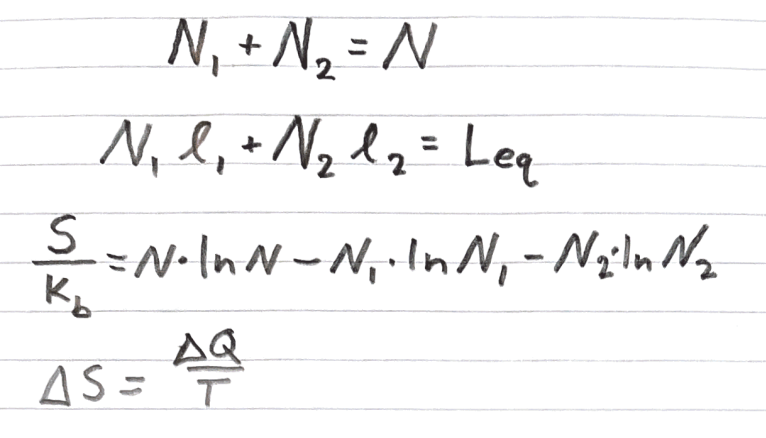 N₁ + N₂ = N
N₁ ℓ₁ + N₂ ℓ₂ = Leq
S/K_b = N·ln N − N₁·ln N₁ − N₂·ln N₂
ΔS = ΔQ/T